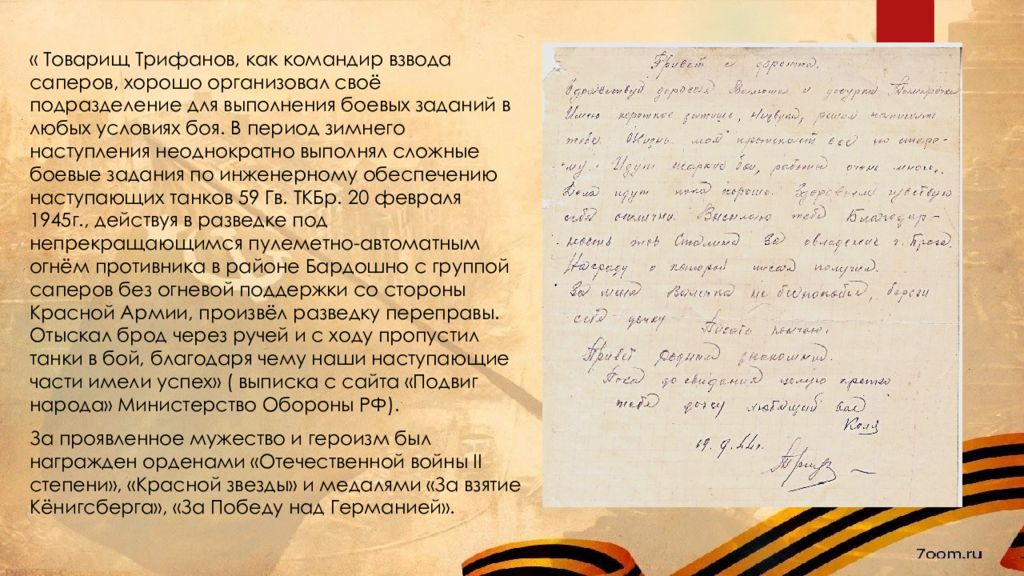 « Товарищ Трифанов, как командир взвода
саперов, хорошо организовал своё
подразделение для выполнения боевых заданий в
любых условиях боя. В период зимнего
наступления неоднократно выполнял сложные
боевые задания по инженерному обеспечению
наступающих танков 59 Гв. ТКБр. 20 февраля
1945г., действуя в разведке под
непрекращающимся пулеметно-автоматным
огнём противника в районе Бардошно с группой
саперов без огневой поддержки со стороны
Красной Армии, произвёл разведку переправы.
Отыскал брод через ручей и с ходу пропустил
танки в бой, благодаря чему наши наступающие
части имели успех» ( выписка с сайта «Подвиг
народа» Министерство Обороны РФ).
За проявленное мужество и героизм был
награжден орденами «Отечественной войны II
степени», «Красной звезды» и медалями «За взятие
Кёнигсберга», «За Победу над Германией».
Привет с фронта.
Здравствуй дорогая Валюша и дочурка
Имею короткое затишье, решил написать
тебе. Жизнь моя протекает все по старо-
му. Идут жаркие бои, работы очень много.
Дела идут пока хорошо. Здоровьем чувствую
себя отлично. Высылаю тебе Благодар-
ность тов Сталина За овладение г. Прага.
Награду о которой писал получил.
За меня Валечка не беспокойся, береги
себя дочку
Писать кончаю.
Привет родным знакомым.
Пока до свидания целую крепко
тебя дочу любящий вас
Коля
19.9.44г.
7oom.ru